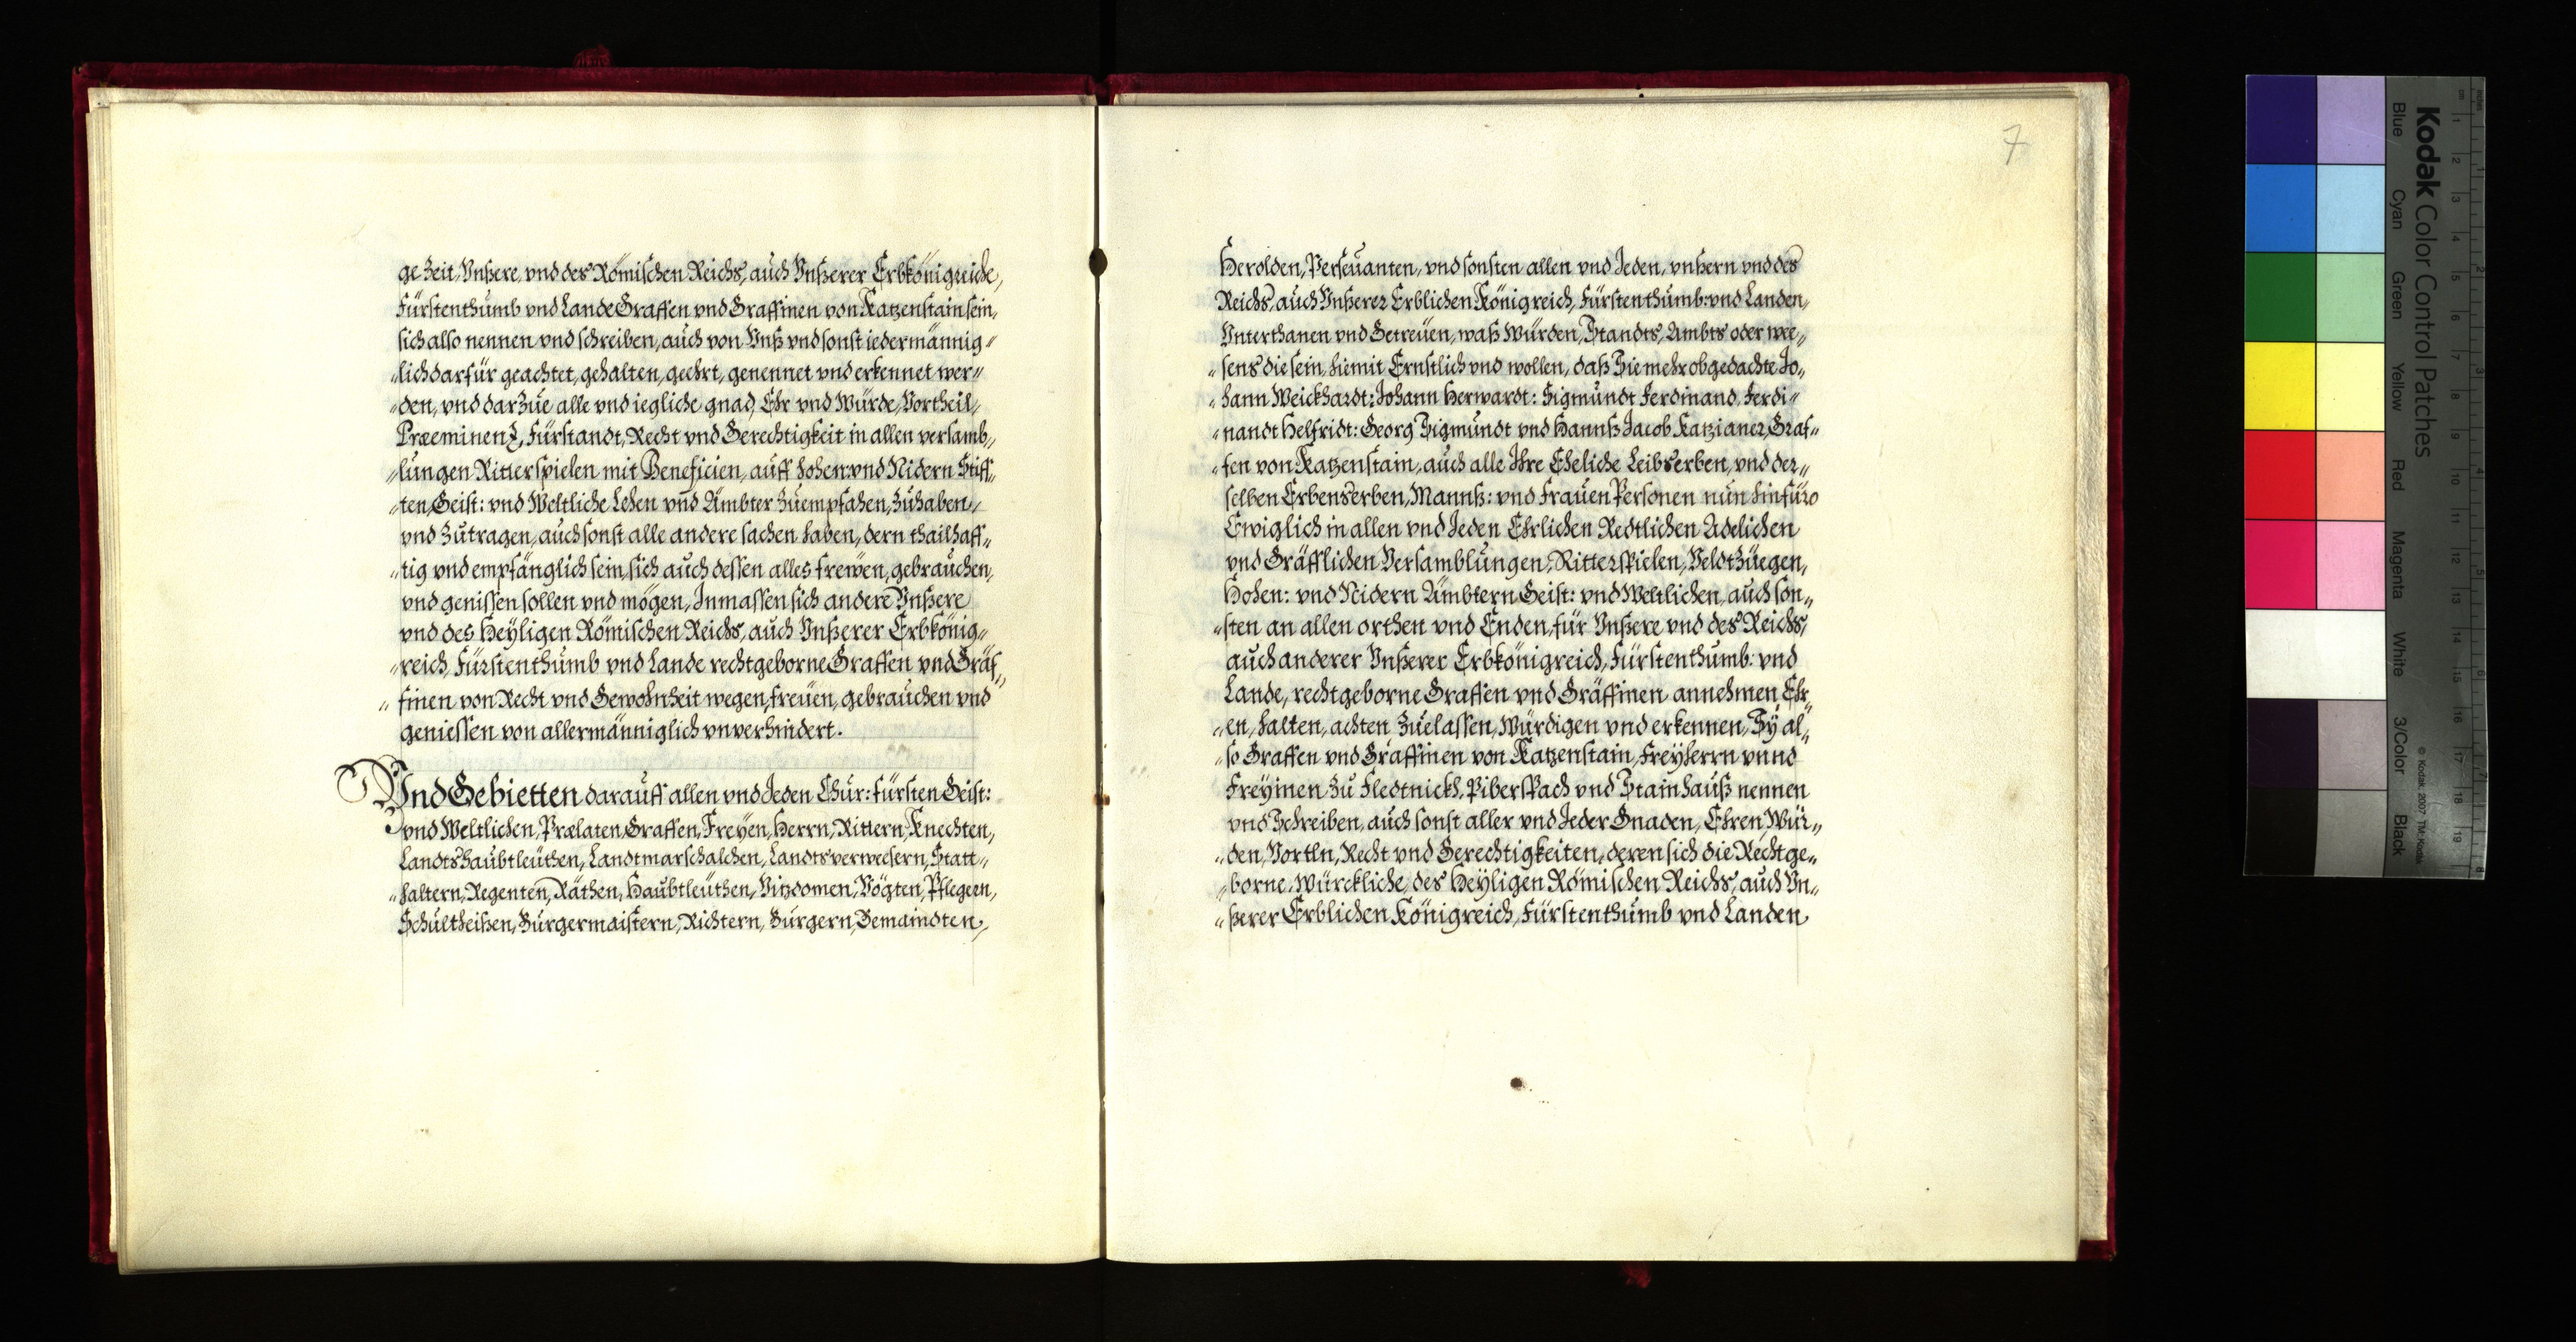 ge Zeit, Vnßere, vnd des Römischen Reichs, auch Vnßerer Erbkönigreiche,
Fürstenthumb vnd Lande Graffen vnd Graffinen von Katzenstain sein,
sich also nennen vnd schreiben, auch von Vnß vnd sonst iedermännig„
„lich darfür geachtet, gehalten, geehrt, genennet vnd erkennet wer„
„den, vnd darzue alle vnd iegliche gnad, Ehr vnd Würde, Vortheil,
Præeminenz, Fürstandt, Recht vnd Gerechtigkeit in allen versamb„
„lungen Ritterspielen mit Beneficien, auff hohen: vnd Nidern Stiff„
„ten, Geist: vnd Weltliche Lehen vnd Ämbter zuempfahen, zuhaben,
vnd zutragen, auch sonst alle andere sachen haben, dern thailhaff„
„tig vnd empfänglich sein, sich auch dessen alles frewen, gebrauchen,
vnd genissen sollen vnd mögen, Inmassen sich andere Vnßere
vnd des Heyligen Römischen Reichs, auch Vnßerer Erbkönig„
„reich, Fürstenthumb vnd Lande rechtgeborne Graffen vnd Gräf„
„finen von Recht vnd Gewohnheit wegen, freuen, gebrauchen vnd
geniessen von allermänniglich vnverhindert.
Vnd Gebietten darauff allen vnd Jeden Chur: Fürsten Geist:
vnd Weltlichen, Prælaten, Graffen, Freyen, Herrn, Rittern, Knechten,
Landtshaubtleüthen, Landtmarschalchen, Landtsverwesern, Statt„
„haltern, Regenten, Räthen, Haubtleüthen, Vitzdomen, Vögten, Pflegern,
Schultheißen, Burgermaistern, Richtern, Burgern, Gemaindten,
7
Herolden, Perseuanten, vnd sonsten allen vnd Jeden, vnßern vnd des
Reichs, auch Vnßerer Erblichen Königreich, Fürstenthumb: vnd Landen,
Vnterthanen vnd Getreüen, waß Würden, Standts, Ambts oder wee„
„sens die sein, hiemit Ernstlich vnd wollen, daß Sie mehrobgedachte Jo„
„hann Weickhardt: Johann Herwardt: Sigmundt Ferdinand, Ferdi„
„nandt Helfridt: Georg Sigmundt vnd Hannß Jacob Katzianer, Graf„
„fen von Katzenstain, auch alle Ihre Eheliche Leibserben, vnd der„
selben Erbenserben, Mannß: vnd Frauen Personen nun hinfüro
Ewiglich in allen vnd Jeden Ehrlichen Redtlichen Adelichen
vnd Gräfflichen Versamblungen, Ritterspielen, Veldtzüegen,
Hohen: vnd Nidern Ämbtern Geist: vnd Weltlichen, auch son„
„sten an allen orthen vnd Enden, für Vnßere vnd des Reichs,
auch anderer Vnßerer Erbkönigreich, Fürstenthumb: vnd
Lande, rechtgeborne Graffen vnd Gräffinen annehmen, Ehr„
„en, halten, achten zuelassen, Würdigen vnd erkennen, Sy al„
„so Graffen vnd Gräffinen von Katzenstain, Freyherrn vnnd
Freyinen zu Fledtnickh, Piberspach vnd Stainhauß nennen
vnd Schreiben, auch sonst aller vnd Jeder Gnaden, Ehren, Wür„
„den, Vortln, Recht vnd Gerechtigkeiten, deren sich die Rechtge„
„borne, Würckliche, des Heyligen Römischen Reichs, auch Vn„
„ßerer Erblichen Königreich, Fürstenthumb vnd Landen
Kodak Color Control Patches
Blue Cyan Green Yellow Red Magenta White 3/Color Black
© Kodak, 2007 TM: Kodak